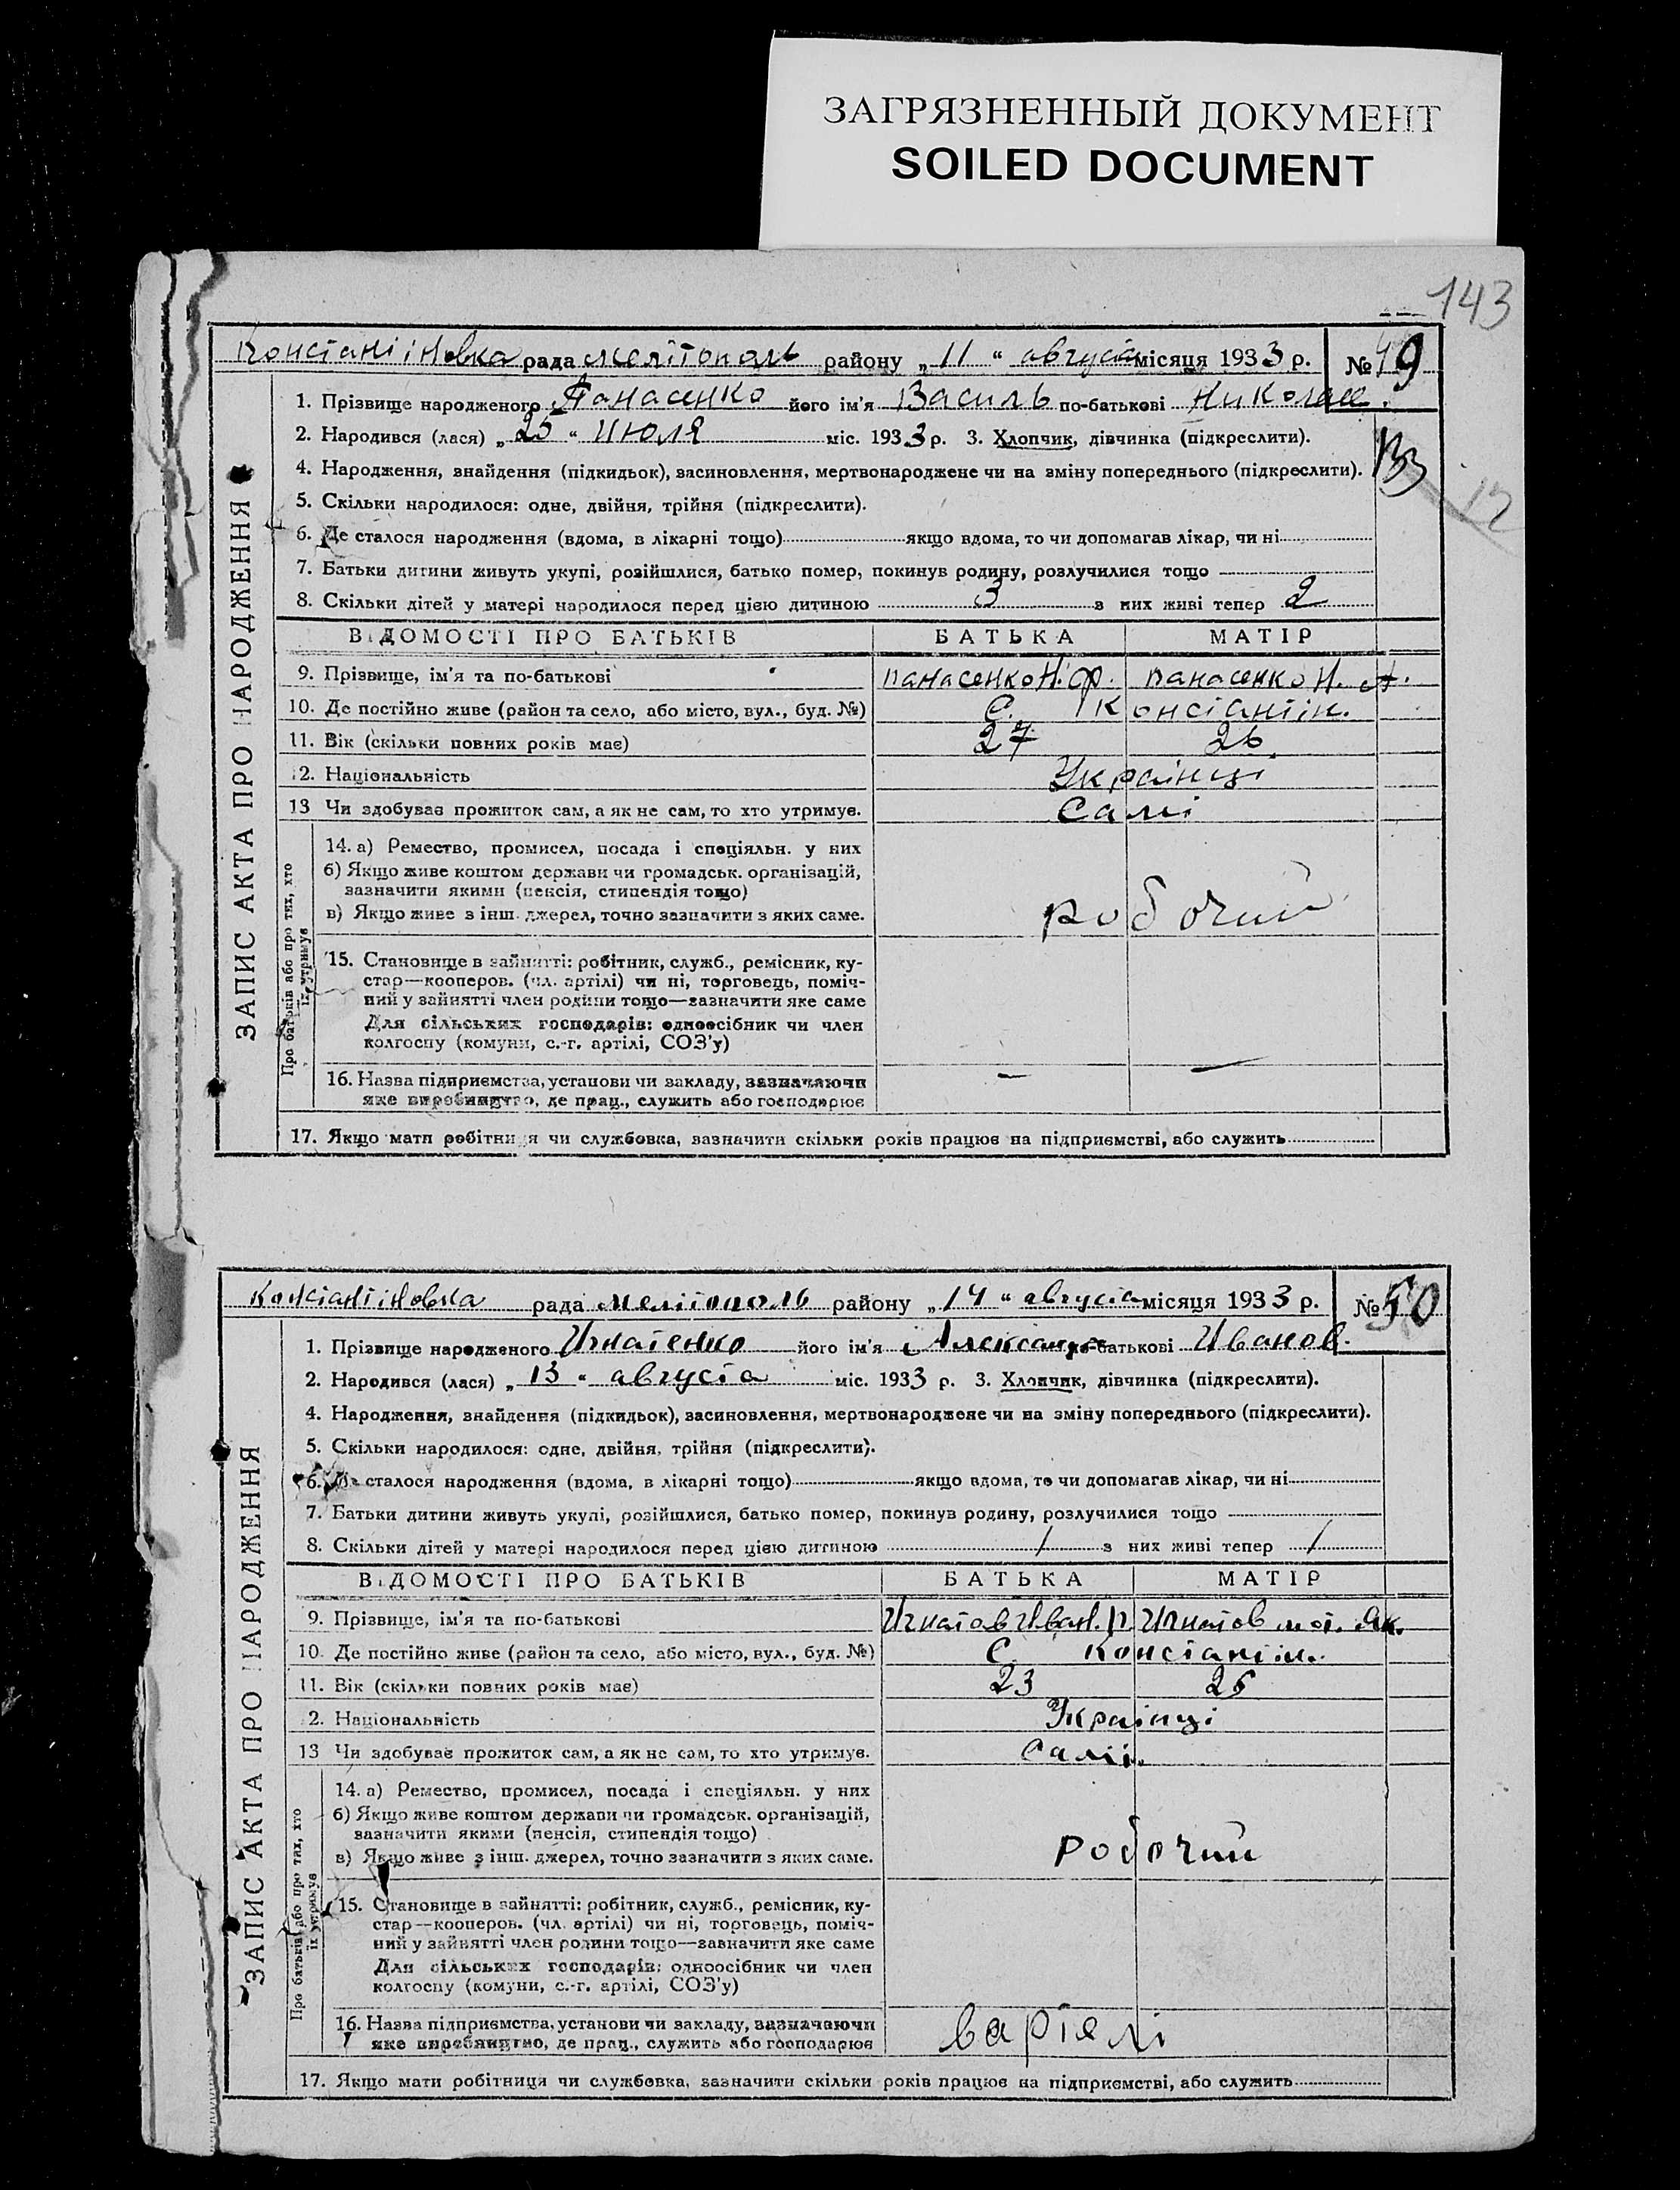 ЗАГРЯЗНЕННЫЙ ДОКУМЕНТ
SOILED DOCUMENT
143
Константіновка рада Мелітополь району „11“ августа місяця 1933 р. № 49
1. Прізвище народженого Панасенко його ім'я Василь по-батькові Николае.
2. Народився (лася) „25“ Июля міс. 1933 р. 3. Хлопчик, дівчинка (підкреслити).
4. Народження, знайдення (підкидьок), засиновлення, мертвонароджене чи на зміну попереднього (підкреслити).
5. Скільки народилося: одне, двійня, трійня (підкреслити).
12
6. Де сталося народження (вдома, в лікарні тощо) якщо вдома, то чи допомагав лікар, чи ні
7. Батьки дитини живуть укупі, розійшлися, батько помер, покинув родину, розлучилися тощо
8. Скільки дітей у матері народилося перед цією дитиною 3 з них живі тепер 2
ВІДОМОСТІ ПРО БАТЬКІВ БАТЬКА МАТІР
9. Прізвище, ім'я та по-батькові Панасенко Н. Ф. Панасенко Н. А.
10. Де постійно живе (район та село, або місто, вул., буд. №) С. Константін.
11. Вік (скільки повних років має) 27 26
12. Національність Українці
13 Чи здобуває прожиток сам, а як не сам, то хто утримує. Самі
ЗАПИС АКТА ПРО НАРОДЖЕННЯ
Про батьків або про тих, хто
їх утримує
14. а) Ремество, промисел, посада і спеціяльн. у них
б) Якщо живе коштом держави чи громадськ. організацій,
зазначити якими (пенсія, стипендія тощо)
в) Якщо живе з інш. джерел, точно зазначити з яких саме.
робочий
15. Становище в зайнятті: робітник, служб., ремісник, ку-
стар—кооперов. (чл. артілі) чи ні, торговець, поміч-
ний у зайнятті член родини тощо—зазначити яке саме
Для сільських господарів: одноосібник чи член
колгоспу (комуни, с.-г. артілі, СОЗ'у)
16. Назва підприємства, установи чи закладу, зазначаючи — —
яке виробництво, де прац., служить або господарює
17. Якщо мати робітниця чи службовка, зазначити скільки років працює на підприємстві, або служить
Константіновка рада Мелітополь району „14“ августа місяця 1933 р. № 50
1. Прізвище народженого Игнатенко його ім'я Александр по-батькові Иванов.
2. Народився (лася) „13“ августа міс. 1933 р. 3. Хлопчик, дівчинка (підкреслити).
4. Народження, знайдення (підкидьок), засиновлення, мертвонароджене чи на зміну попереднього (підкреслити).
5. Скільки народилося: одне, двійня, трійня (підкреслити).
6. Де сталося народження (вдома, в лікарні тощо) якщо вдома, то чи допомагав лікар, чи ні
7. Батьки дитини живуть укупі, розійшлися, батько помер, покинув родину, розлучилися тощо
8. Скільки дітей у матері народилося перед цією дитиною 1 з них живі тепер 1
ВІДОМОСТІ ПРО БАТЬКІВ БАТЬКА МАТІР
9. Прізвище, ім'я та по-батькові Игнатов Иван. Игнатов Як.
10. Де постійно живе (район та село, або місто, вул., буд. №) С. Константін.
11. Вік (скільки повних років має) 23 25
12. Національність Українці
13 Чи здобуває прожиток сам, а як не сам, то хто утримує. Самі.
ЗАПИС АКТА ПРО НАРОДЖЕННЯ
Про батьків або про тих, хто
їх утримує
14. а) Ремество, промисел, посада і спеціяльн. у них
б) Якщо живе коштом держави чи громадськ. організацій,
зазначити якими (пенсія, стипендія тощо)
в) Якщо живе з інш. джерел, точно зазначити з яких саме.
робочий
15. Становище в зайнятті: робітник, служб., ремісник, ку-
стар—кооперов. (чл. артілі) чи ні, торговець, поміч-
ний у зайнятті член родини тощо—зазначити яке саме
Для сільських господарів: одноосібник чи член
колгоспу (комуни, с.-г. артілі, СОЗ'у)
16. Назва підприємства, установи чи закладу, зазначаючи вартелі
яке виробництво, де прац., служить або господарює
17. Якщо мати робітниця чи службовка, зазначити скільки років працює на підприємстві, або служить